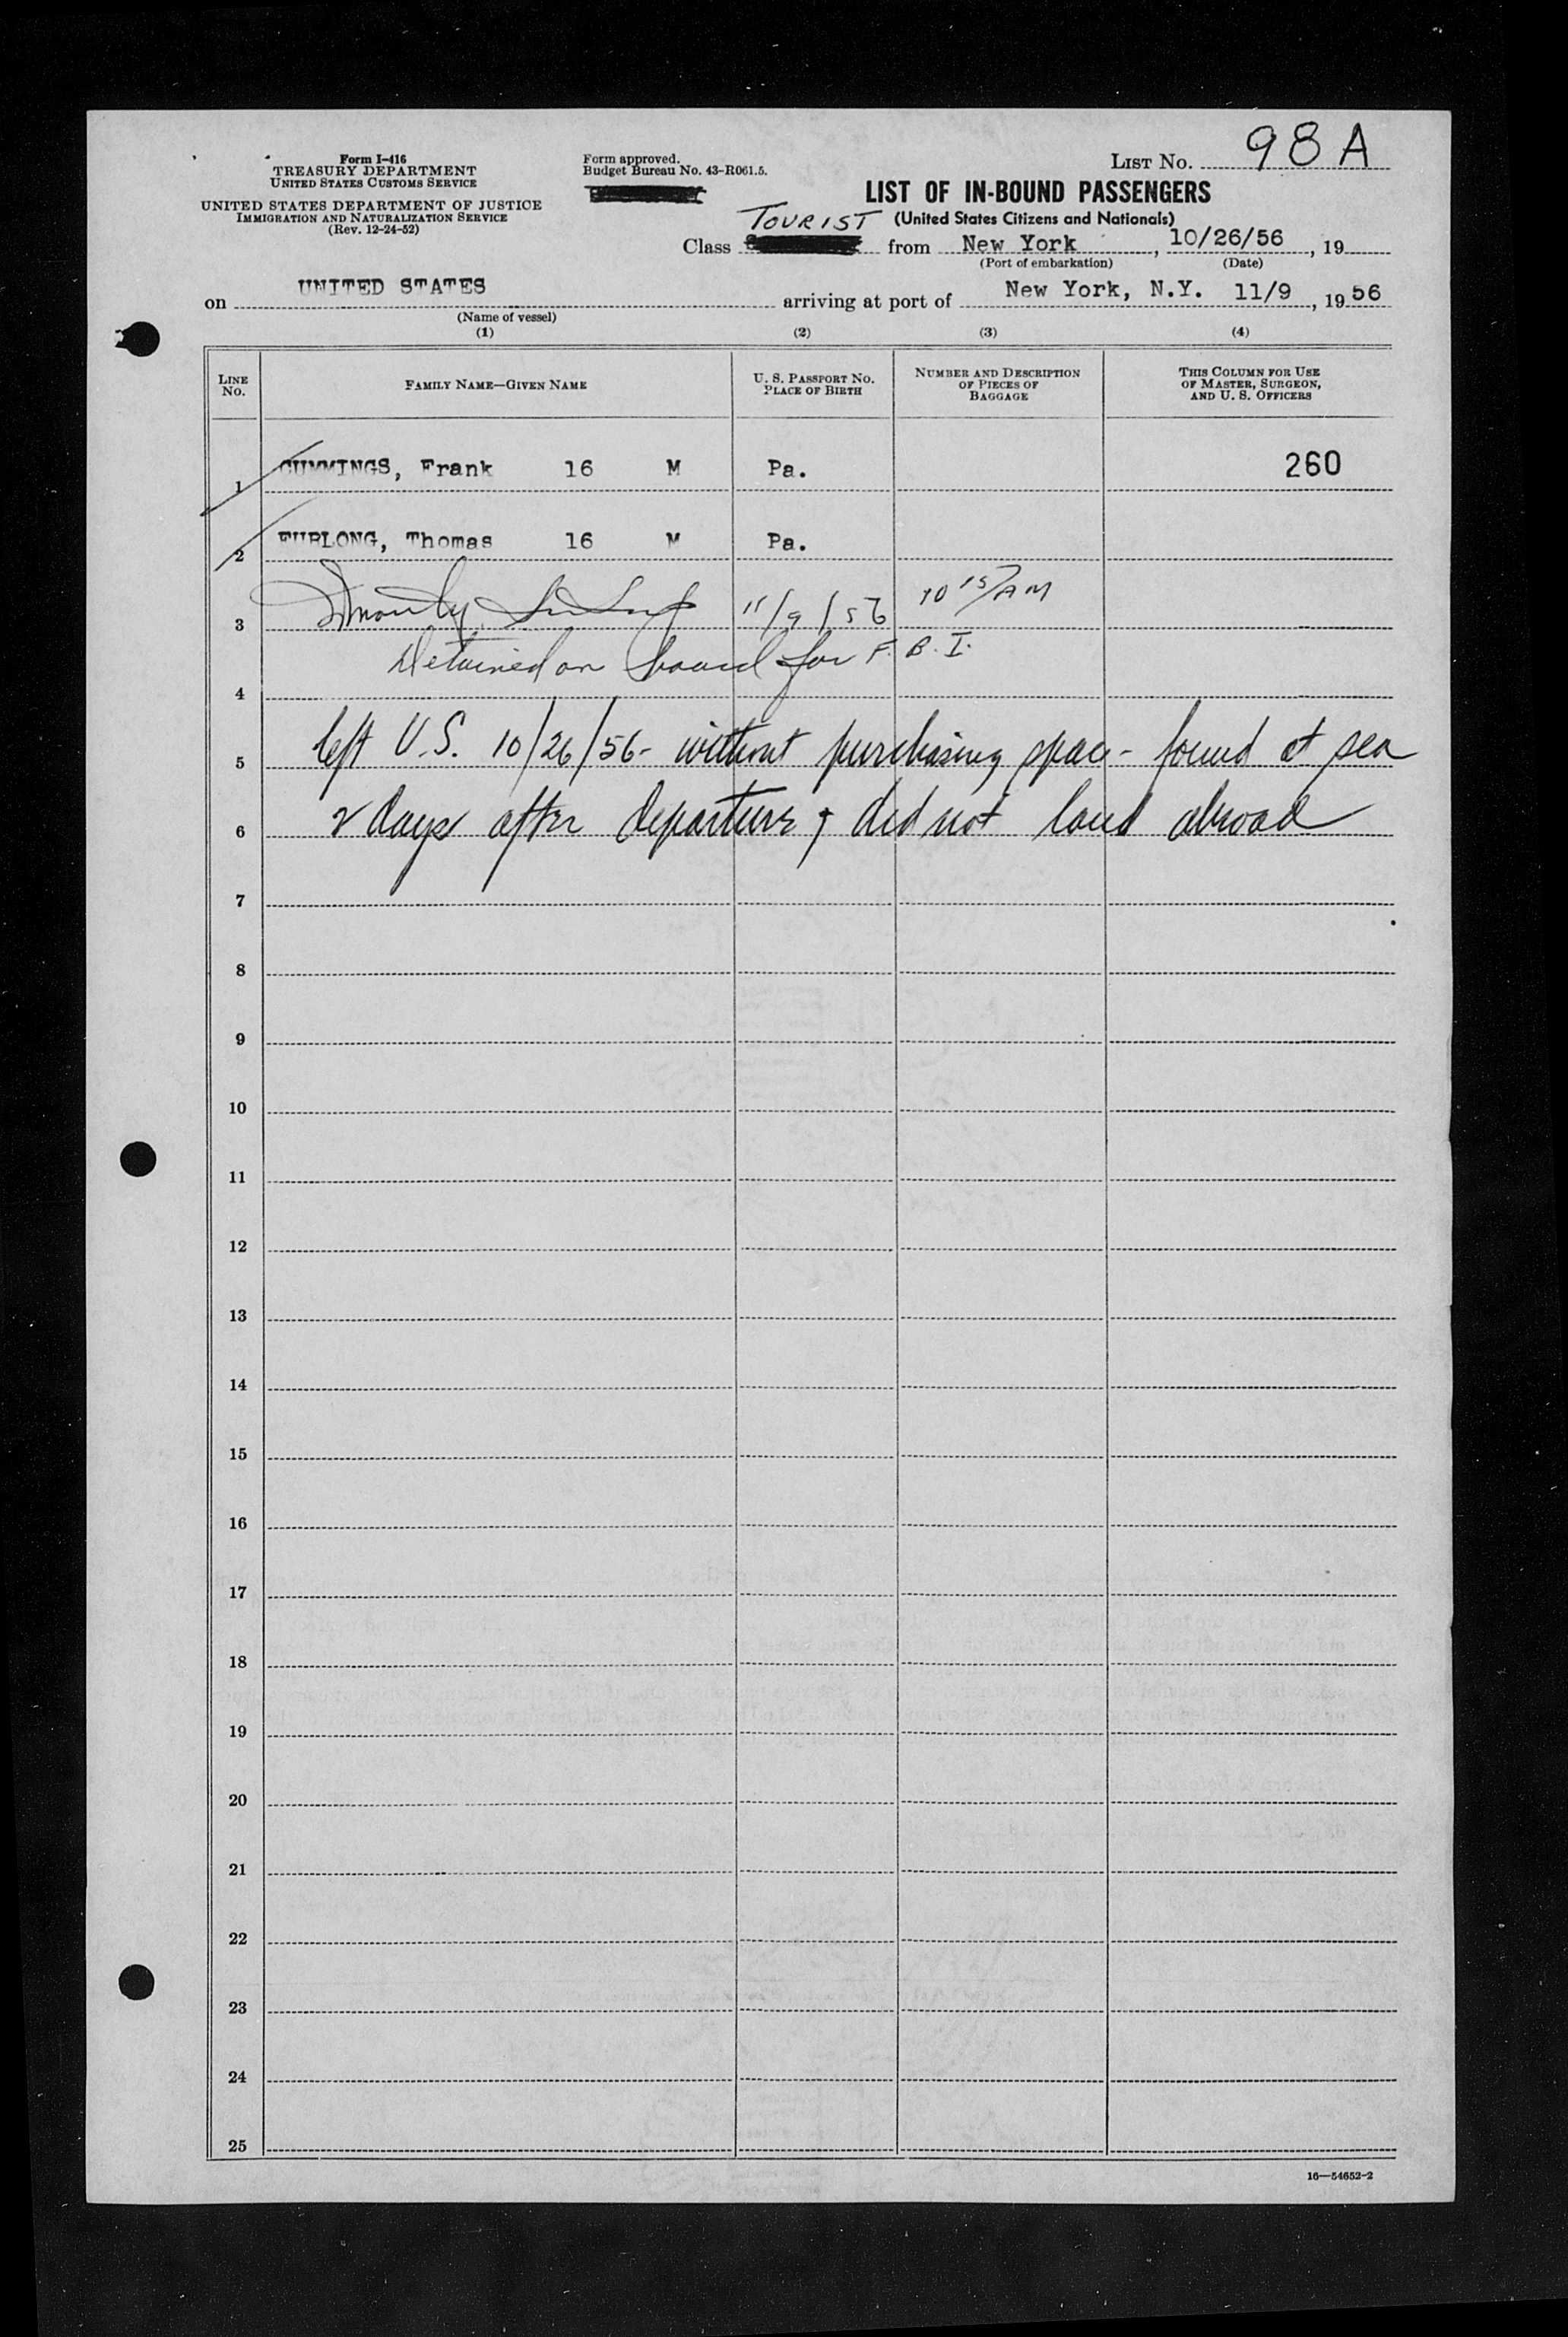 Form I-416
TREASURY DEPARTMENT
UNITED STATES CUSTOMS SERVICE
UNITED STATES DEPARTMENT OF JUSTICE
IMMIGRATION AND NATURALIZATION SERVICE
(Rev. 12-24-52)
Form approved.
Budget Bureau No. 43-R061.5.
LIST No. 98 A
LIST OF IN-BOUND PASSENGERS
(United States Citizens and Nationals)
Class TOURIST from New York, 10/26/56, 19
(Port of embarkation) (Date)
on UNITED STATES arriving at port of New York, N.Y. 11/9, 1956
(Name of vessel)
(1) (2) (3) (4)
LINE No. FAMILY NAME—GIVEN NAME U. S. PASSPORT No. PLACE OF BIRTH NUMBER AND DESCRIPTION OF PIECES OF BAGGAGE THIS COLUMN FOR USE OF MASTER, SURGEON, AND U. S. OFFICERS
1 CUMMINGS, Frank 16 M Pa. 260
2 FURLONG, Thomas 16 M Pa.
3 11/9/56 10 15/AM
Detained on board for F.B.I.
4
5 left U.S. 10/26/56- without purchasing space- found at sea
6 2 days after departure & did not land abroad
7
8
9
10
11
12
13
14
15
16
17
18
19
20
21
22
23
24
25
16—54652-2